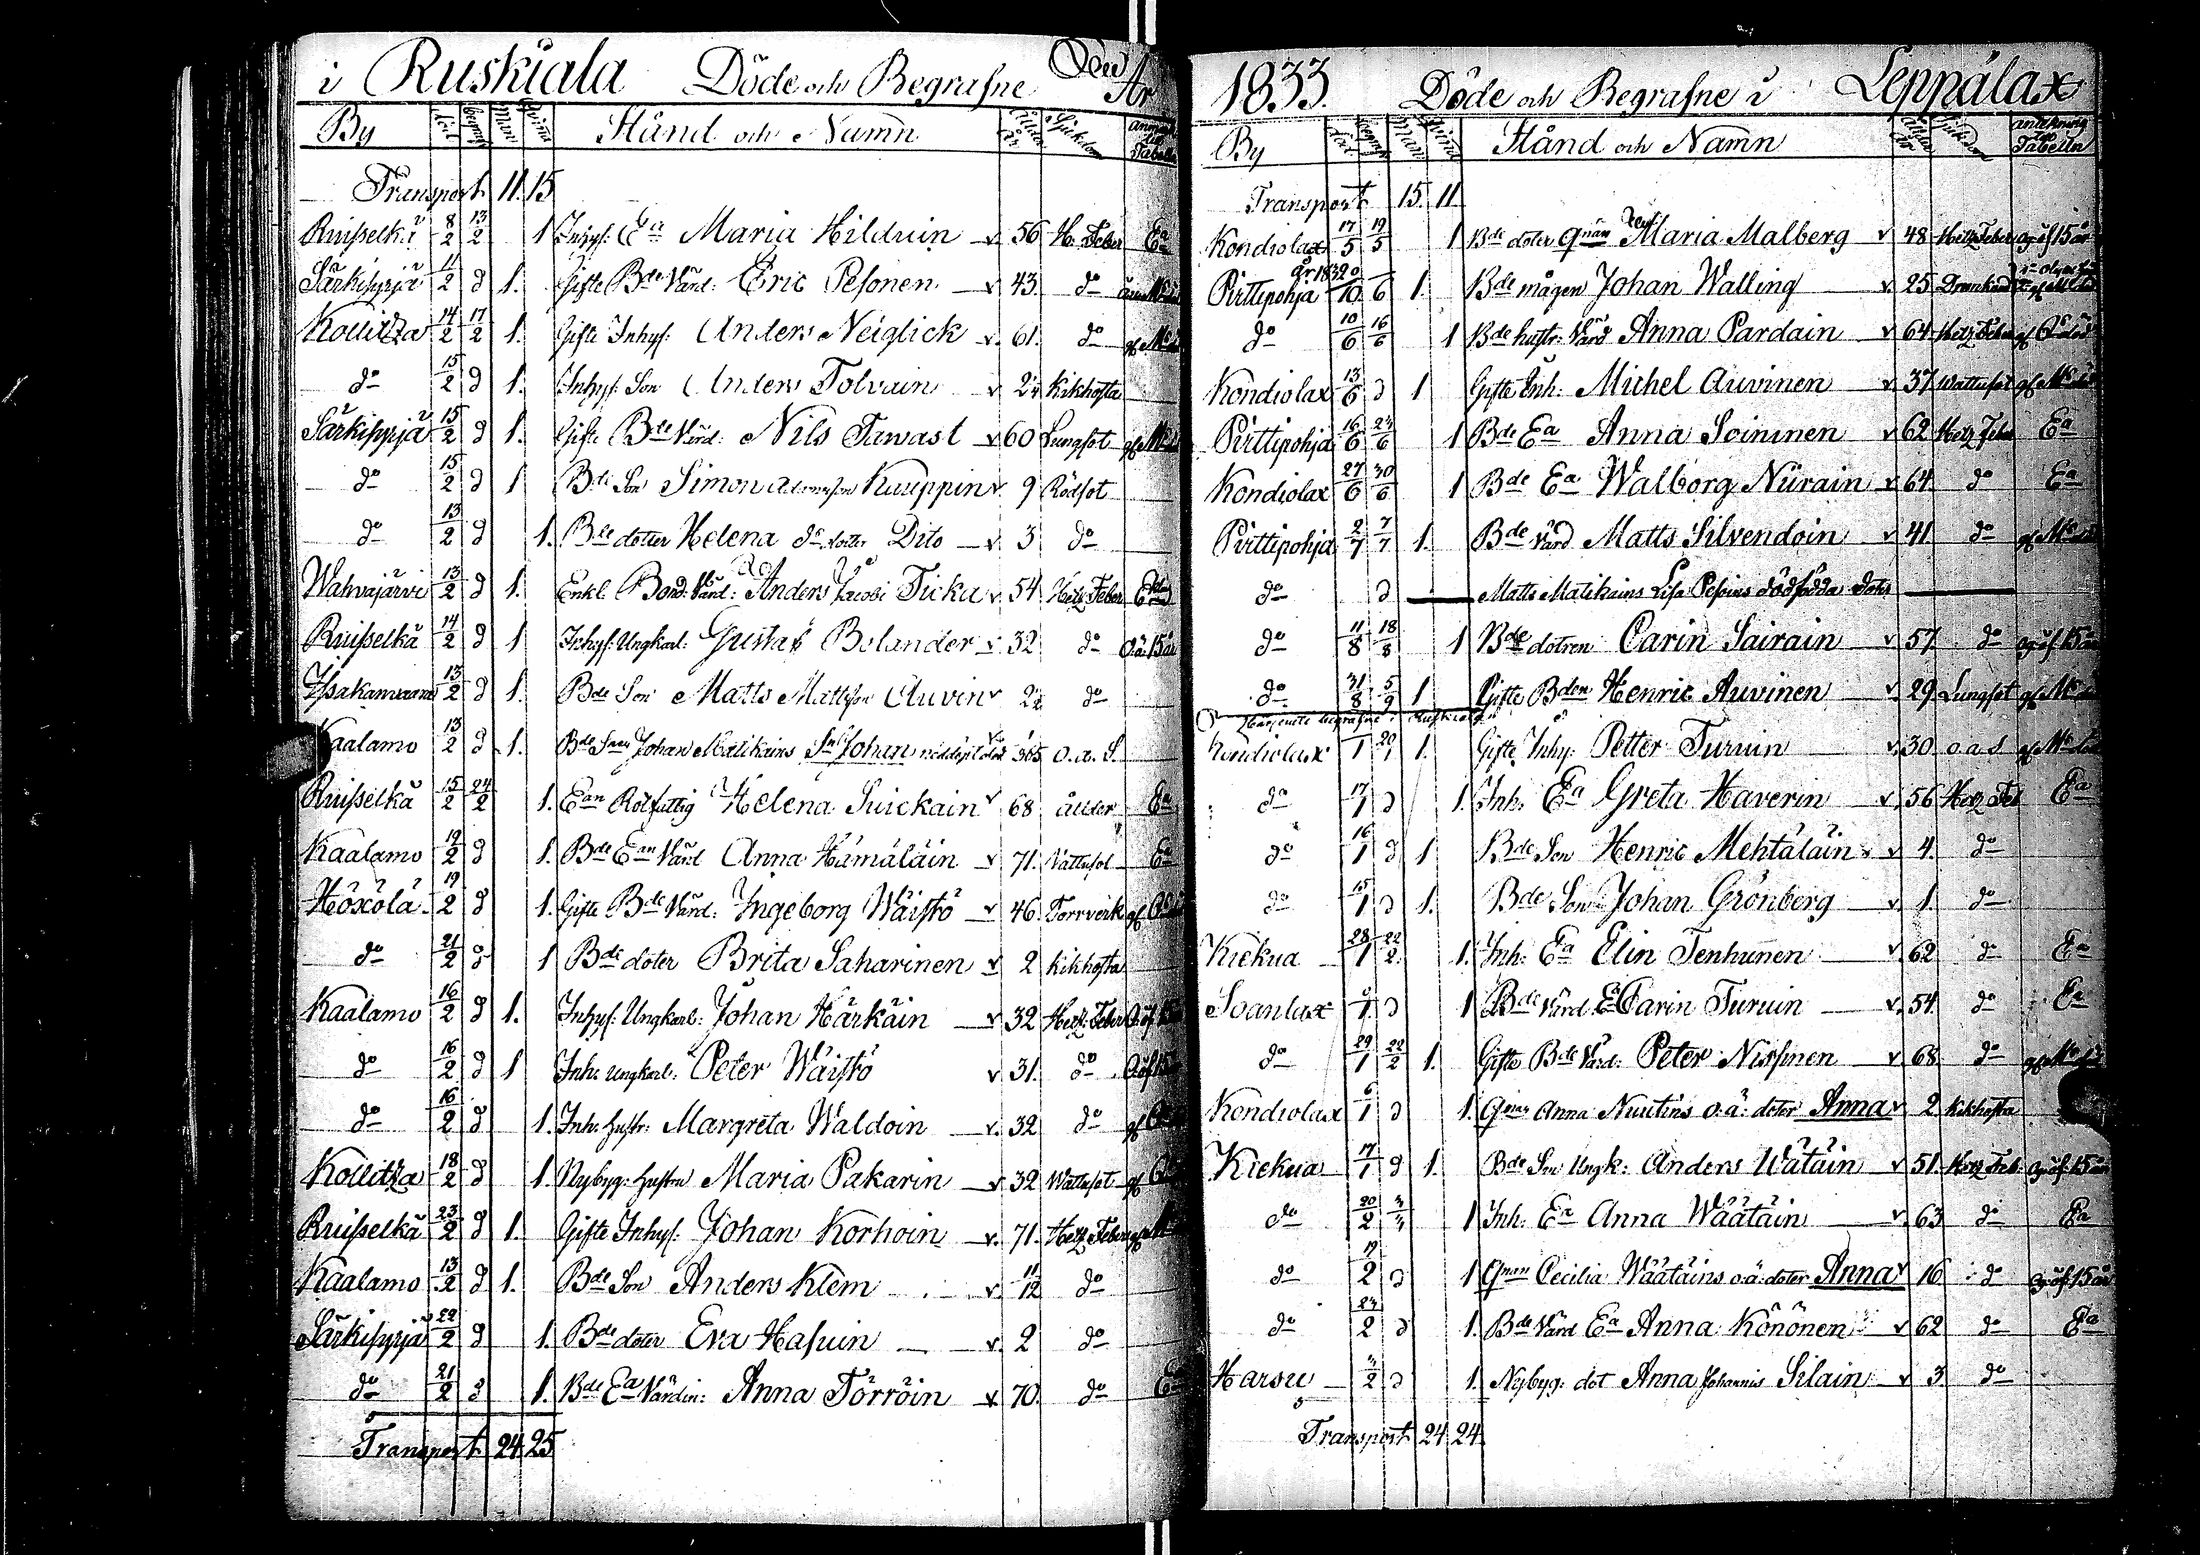 i Ruskiala Döde och Begrafne År
By död begraf Man Qvinn Stånd och Namn Ålder år Sjukdom Tabelln
Transport 11. 15
Ruisselkä 8/2 13/2 1 Inhys: Ea Maria Hilduin v. 56 H. Feber Ea
Särkisyrjä 11/2 d 1. Gifte Bde Värd: Eric Pesonen v 43. do
Kollitza 14/2 17/2 1. Gifte Inhys: Anders Neiglick v. 61. do
do 15/2 d 1. Inhys: Son Anders Tolvain v 2 1/4 Kikhosta
Särkisyrjä 15/2 d 1. Gifte Bde Värd: Nils Tawast v 60 Lungsot
do 15/2 d 1 Bde Son Simon Kauppin v. 9 Rödsot
do 13/2 d 1. Bde dotter Helena do dotter Dito v. 3 do
Wahvajärvi 13/2 d 1. Enkl. Bond: Värd: Anders Jacobi Ticka v. 54 Hetz Feber
Ruisselkä 14/2 d 1 Inhys: Ungkarl: Gustaf Bolander v 32 do
13/2 d 1. Bde Son Matts Mattsson Auvin v 2 1/4 do
Kaalamo 13/2 d 1. Bde Johan Matikains Johan o. a. S.
Ruisselkä 15/2 24/2 1. Ean Rotfattig Helena Suickain v 68 ålder Ea
Kaalamo 19/2 d 1. Bde Ean Värd Anna Hämäläin v 71. Vattusot Ea
Höxölä 19/2 d 1. Gifte Bde Värd: Ingeborg Wäistö v 46. Torrverk
do 21/2 d 1 Bde doter Brita Saharinen v 2 kikhosta
Kaalamo 16/2 d 1. Inhys: Ungkarl: Johan Härkäin v 32 Hetz: Feber
do 16/2 d 1 Inh: ungkarl: Peter Wäistö v 31. do
do 16/2 d 1. Inh: hustr: Margreta Waldoin v. 32 do
Kollitza 18/2 d 1. Nybyg: hustru Maria Pakarin v 32 Wattusot
Ruisselkä 23/2 d 1. Gifte Inhys: Johan Korhoin v. 71. Hetz Feber
Kaalamo 13/2 d 1. Bde Son Anders Klem v. 11/12 do
Särkisyrjä 22/2 d 1. Bde doter Eva Hasuin v. 2 do
do 21/2 d 1. Bde Ea Värdin: Anna Törröin v. 70. do Ea
Transport 24. 25
1833. Döde och Begrafne i Leppälax
By död begraf Man Qvinn Stånd och Namn Ålder år Sjukdom antekning Tabelln
Transport 15. 11
Kondiolax 17/5 19/5 1 Bde doter Qnan Maria Malberg v 48 Hetz Feber ogäf 15 år
Pirttipohja år 1832 1. Bde mågen Johan Walling v. 25
do 10/6 16/6 1 Bde hustr: Värd Anna Pardain v 64 Hetz Feber
Kondiolax 13/6 d 1 Gifte Inh: Michel Auvinen v. 37 Wattusot
Pirttipohja 16/6 24/6 1 Bde Ea Anna Soininen v 62 Hetz Feb Ea
Kondiolax 27/6 30/6 1 Bde Ea Walborg Nürain v 64 do Ea
Pirttipohja 2/7 7/7 1. Bde Värd Matts Silvendoin v 41 do
do d Matts Matikains Lisa Pesoins dödfödda doter
do 11/8 18/8 1 Bde dotren Carin Sairain v 57 do ogäf 15 år
do 31/8 5/9 1 Gifte Bden Henric Auvinen v. 29 Lungsot
begrafne i Ruskiala
Kondiolax 1. Gifte Inhy: Petter Turuin v. 30 o a S
do 17/1 d 1. Inh: Ea Greta Haverin v. 56 Hetz Feb Ea
do 16/1 d 1 Bde Son Henric Mehtäläin v 4. do
do 15/1 d 1. Bde Son Johan Grönberg v. 1. do
Kiekua 28/1 22/2 1. Inh: Ea Elin Tenhunen v 62 do Ea
Soanlax d 1 Bde Värd Ea Carin Turuin v. 54. do Ea
do 29/1 22/2 1. Gifte Bde Värd: Peter Nissinen v 68. do
Kondiolax 6/1 d 1. Qnan Anna Nuutins o.ä: doter Anna v 2 kikhosta
Kiekua 17/1 d 1. Bde Son Ungk: Anders Wätäin v 51. Hetz Feb. ogäf: 15 år
do 20/2 1 Inh: Ea Anna Wäätäin v. 63 do Ea
do 19/2 d 1 Qnan Cecilia Wäätäins o.ä: doter Anna v 16 do ogäf: 15 år
do 24/2 d 1. Bde Värd Ea Anna Könönen v 62 do Ea
Harsu d 1. Nybyg: dot Anna Johannis Silain v 3. do
Transport 24 24